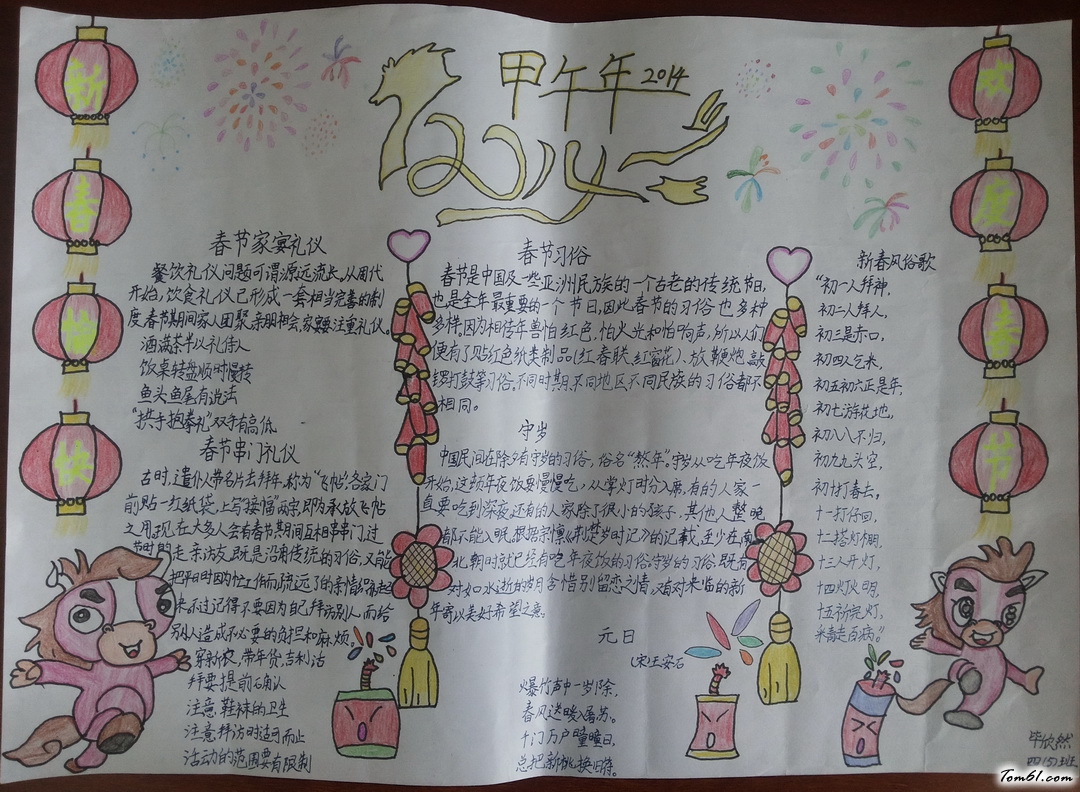 新
春
快
欢
度
春
节
甲午年 2014
春节家宴礼仪
餐饮礼仪问题可谓源远流长,从周代
开始,饮食礼仪已形成一套相当完善的制
度,春节期间家人团聚,亲朋相会,家宴要注重礼仪。
酒满茶半以礼待人
饭桌转盘顺时慢转
鱼头鱼尾有说法
“拱手抱拳礼”双手有高低
春节串门礼仪
古时,遣仆人带名片去拜年,称为“飞帖”,各家门
前贴一红纸袋,上写“接福”两字,即为承放飞帖
之用,现在大多人会有春节期间互相串串门,过
节时的走亲访友,既是沿有传统的习俗,又能
把平时因为忙工作而疏远了的亲情
来,不过记得不要因为自己拜访别人而给
别人造成不必要的负担和麻烦。
穿新衣,带年货,吉利话
拜要提前确认
注意鞋袜的卫生
注意拜访时适可而止
活动的范围要有限制
春节习俗
春节是中国及一些亚洲民族的一个古老的传统节日,
也是全年最重要的一个节日,因此春节的习俗也多种
多样,因为相传年兽怕红色,怕火光和怕响声,所以人们
便有了贴红色纸类制品(红春联、红窗花)、放鞭炮、敲
锣打鼓等习俗,不同时期,不同地区不同民族的习俗都不
相同。
守岁
中国民间在除夕有守岁的习俗,俗名“熬年”。守岁从吃年夜饭
开始,这顿年夜饭要慢慢吃,从掌灯时分入席,有的人家一
直要吃到深夜,还有的人家除了很小的孩子,其他人整晚
都不能入眠,根据宗懔《荆楚岁时记》的记载,至少在南
北朝时就已经有吃年夜饭的习俗,守岁的习俗,既有
对如水逝的岁月含惜别留恋之情,又有对来临的新
年寄以美好希望之意。
元日
(宋)王安石
爆竹声中一岁除,
春风送暖入屠苏。
千门万户曈曈日,
总把新桃换旧符。
新春风俗歌
“初一人拜神,
初二人拜人,
初三是赤口,
初四人乞米,
初五初六正是年,
初七游花地,
初八八不归,
初九九头空,
初十打春去,
十一打仔回,
十二搭灯棚,
十三人开灯,
十四灯火明,
十五祈完灯,
米毒走百病。”
毕欣然
四(5)班
Tom61.com